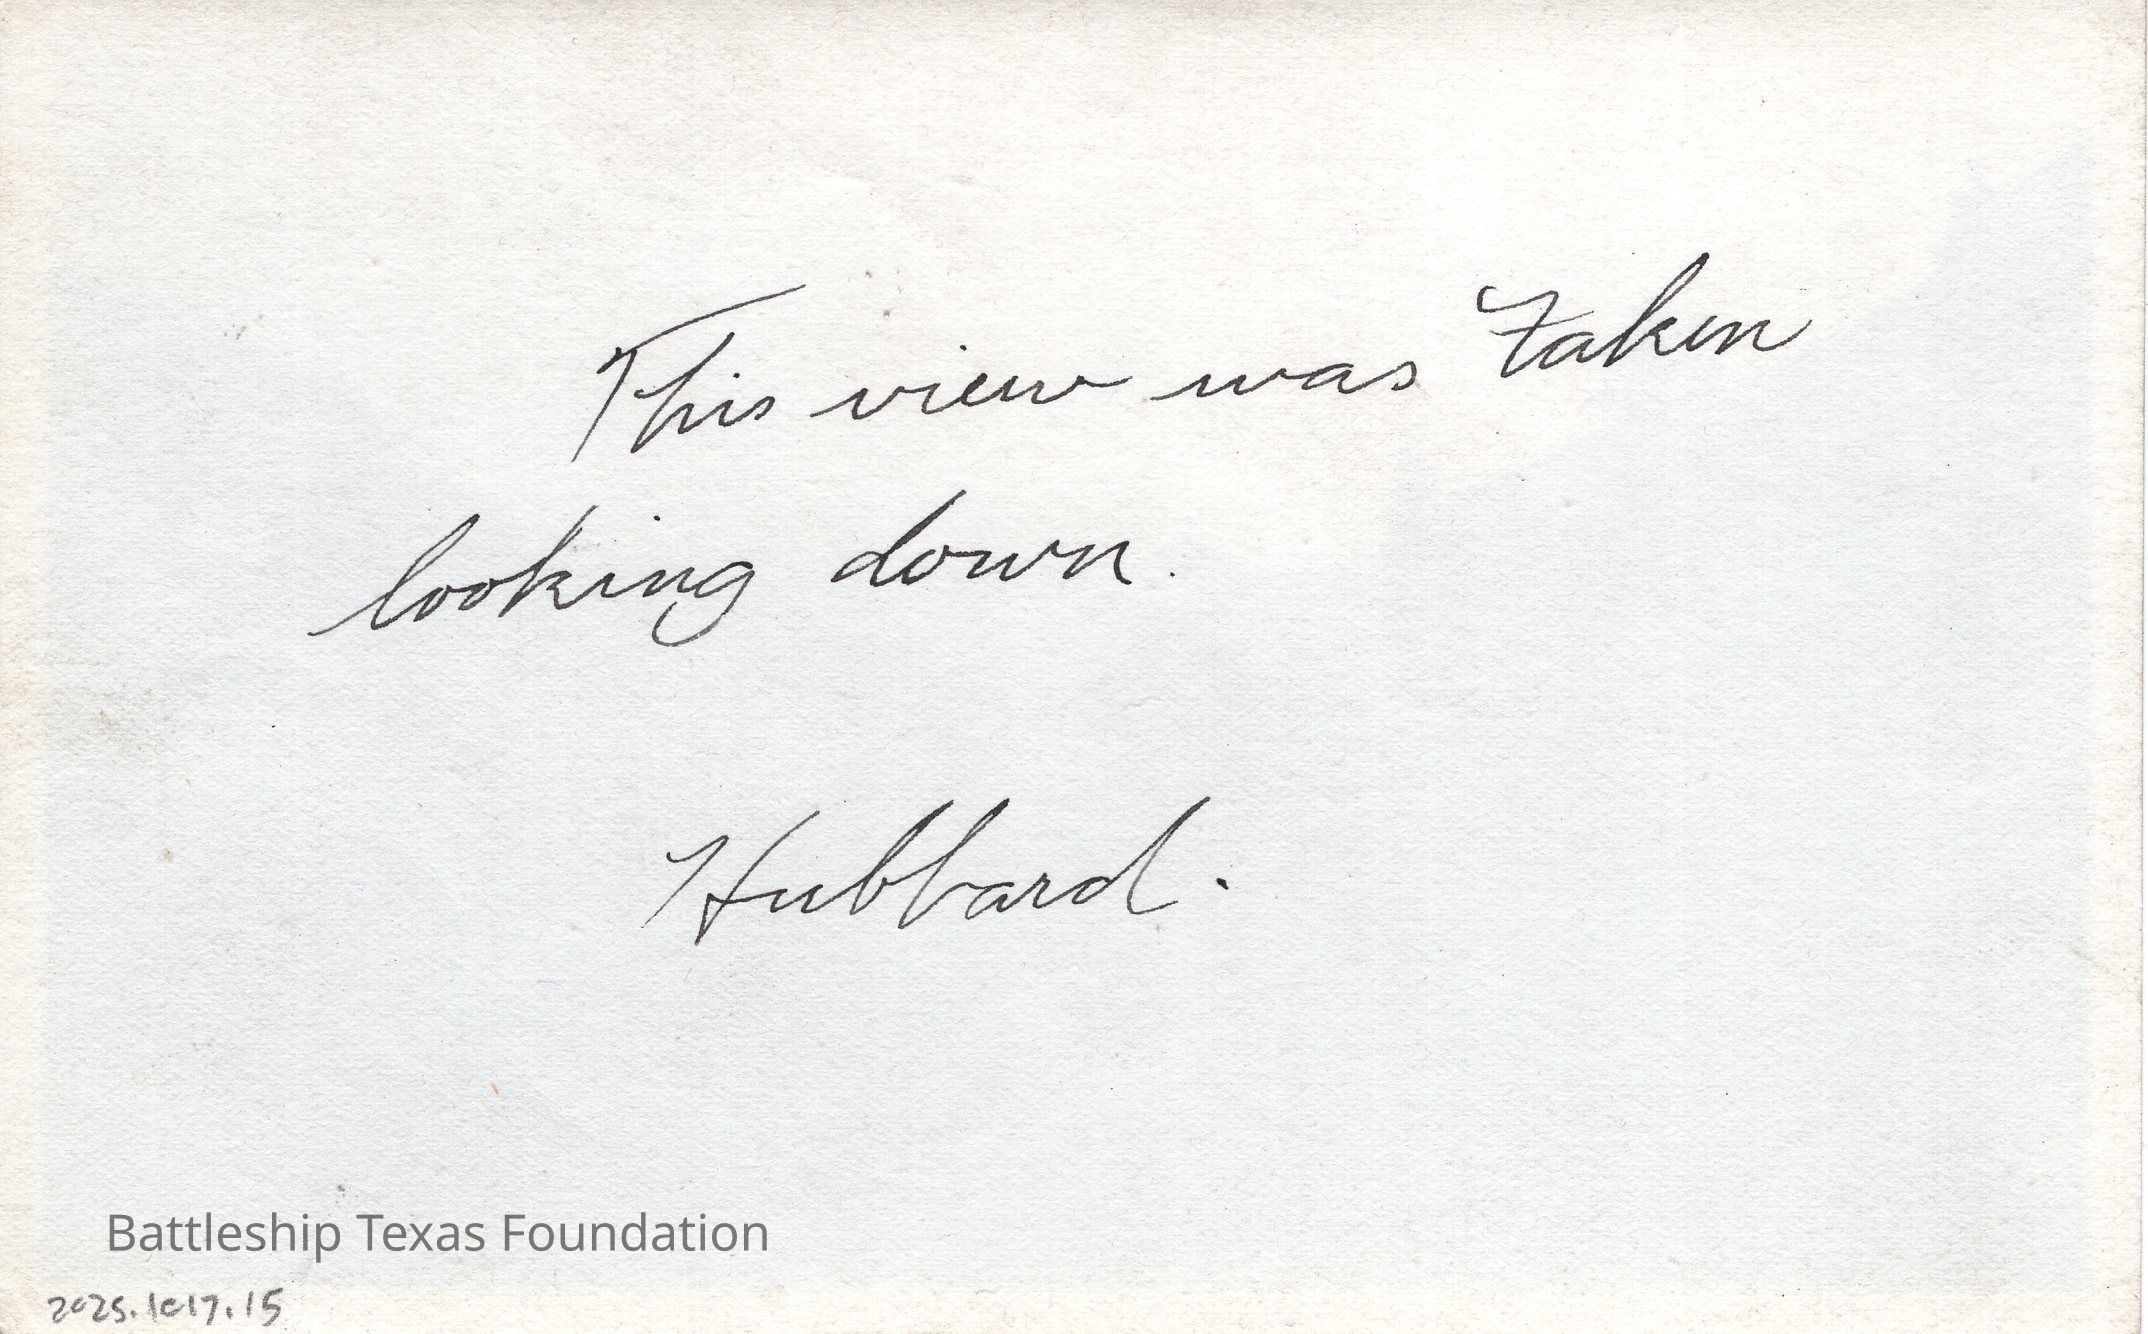 This view was taken
looking down.
Hubbard.
Battleship Texas Foundation
2025.1017.15